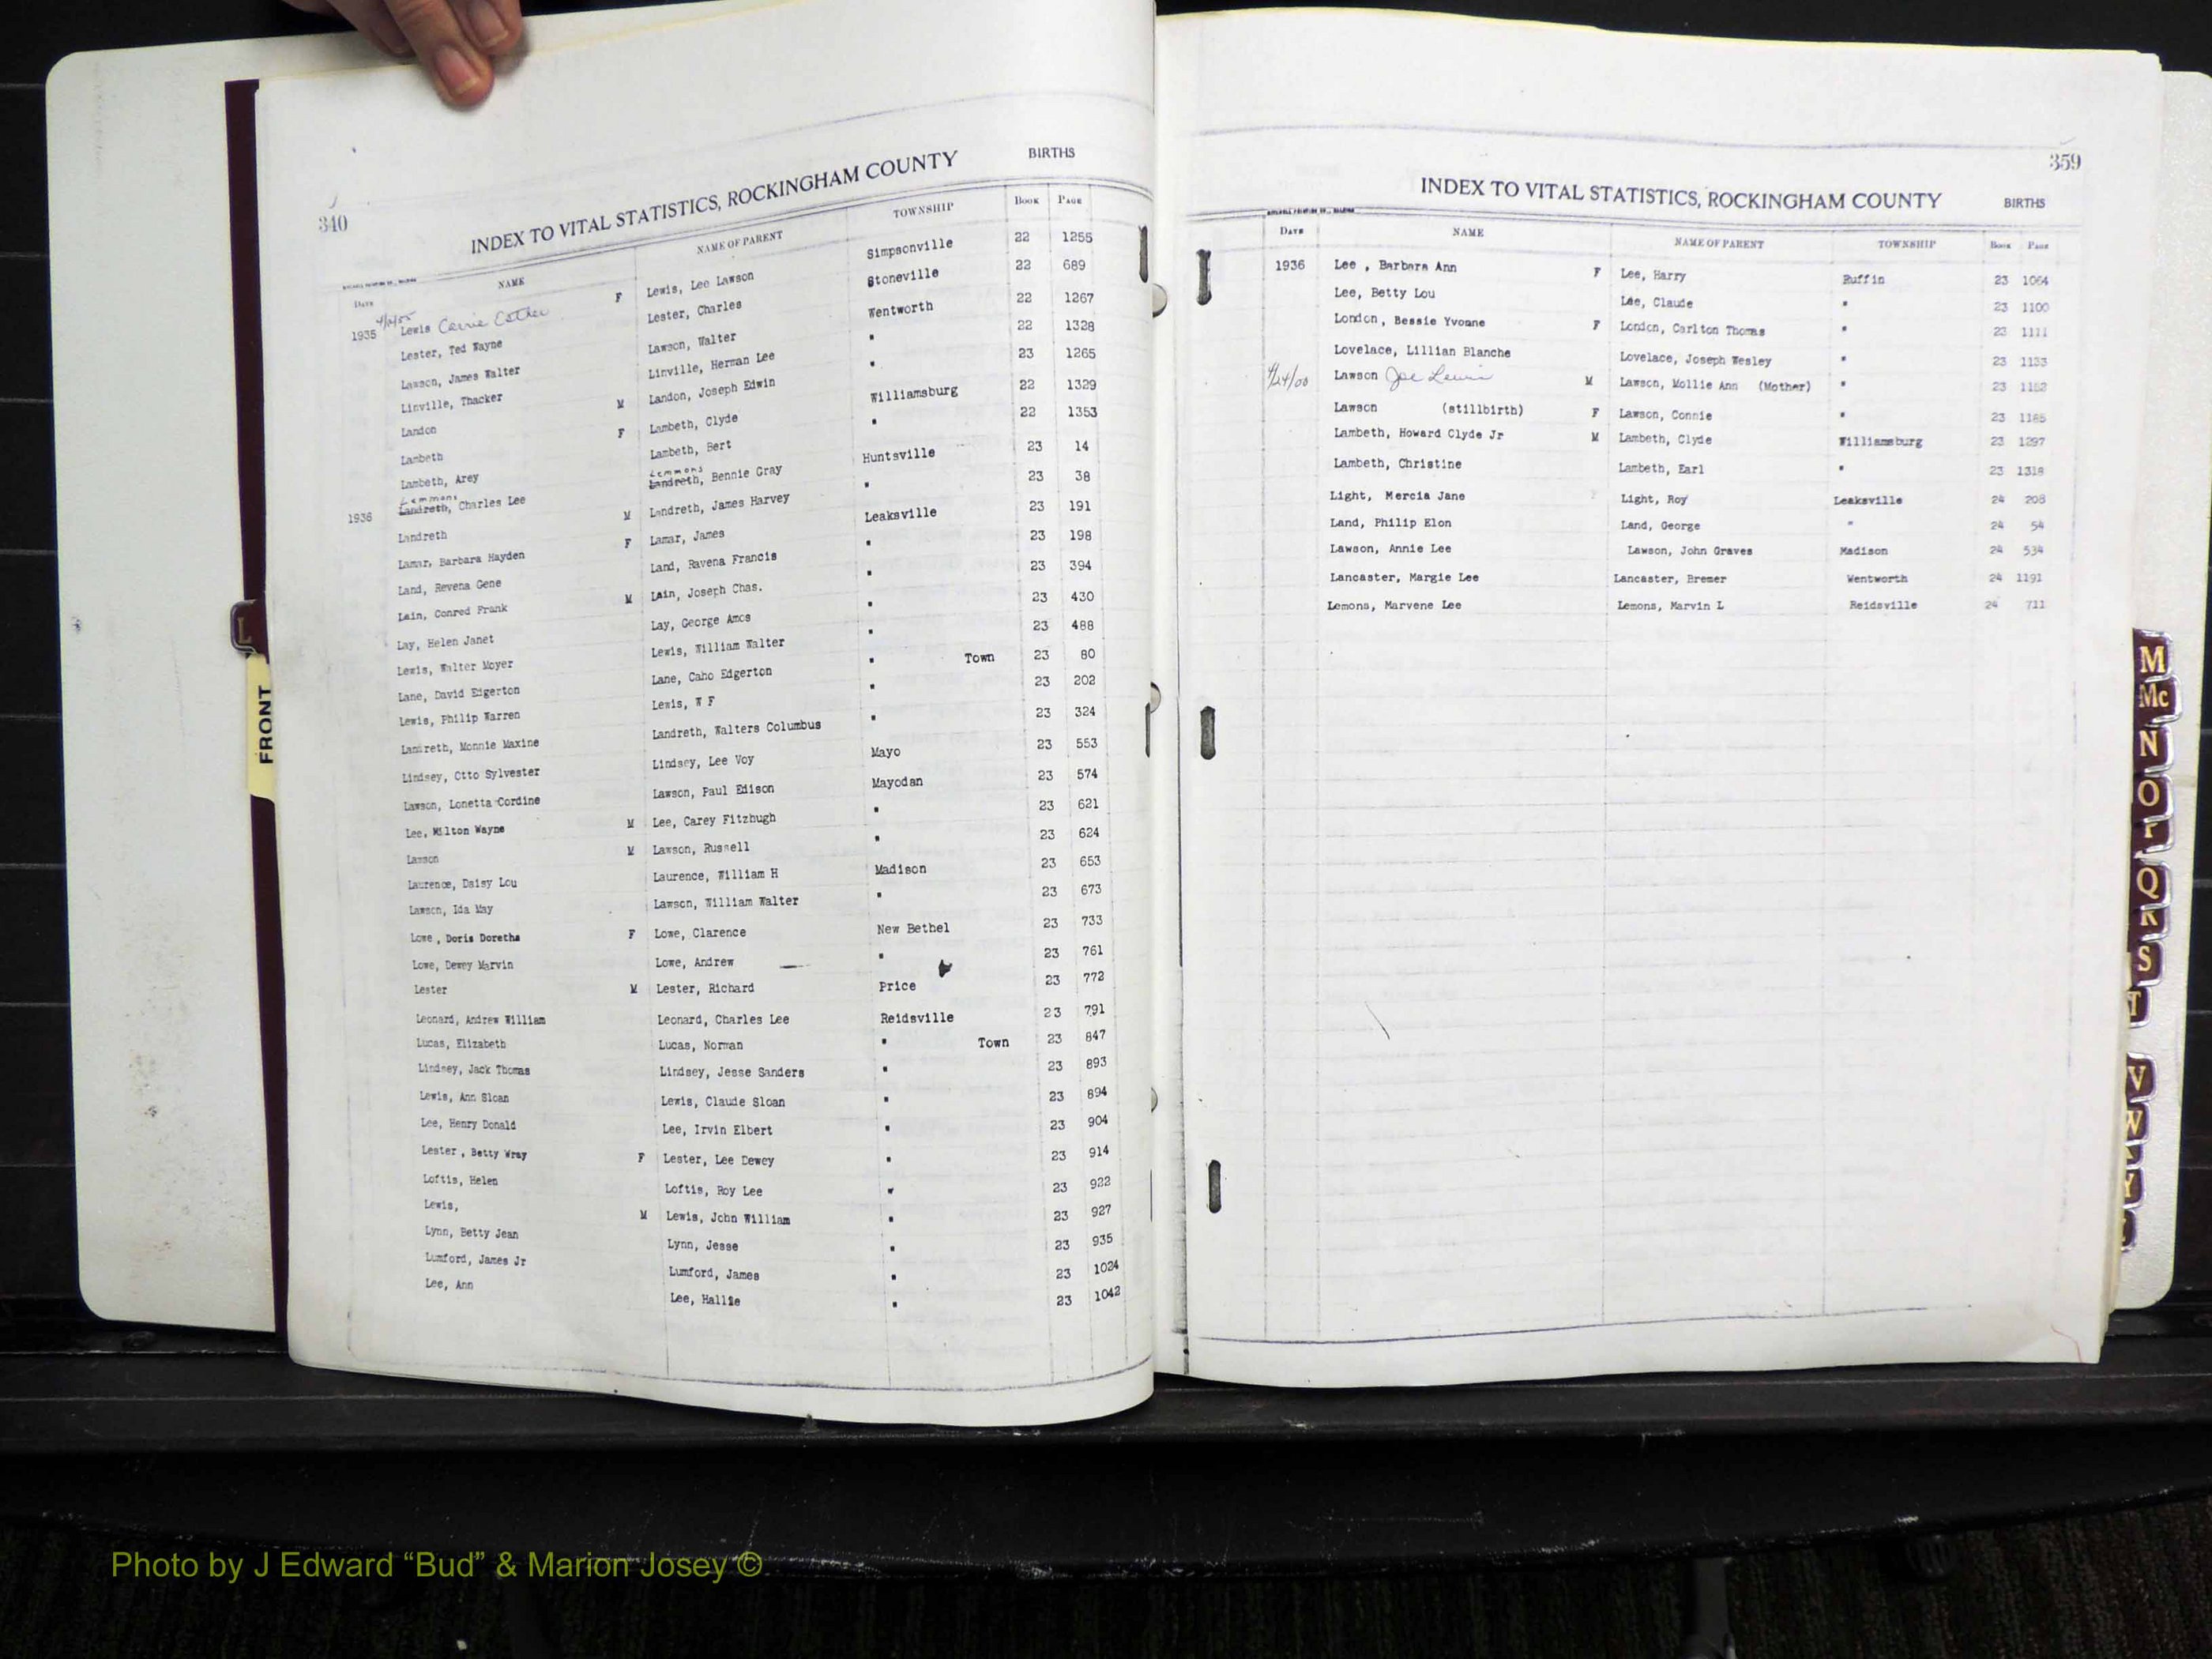 340
INDEX TO VITAL STATISTICS, ROCKINGHAM COUNTY BIRTHS
DATE NAME NAME OF PARENT TOWNSHIP BOOK PAGE
1935 Lewis Carrie Esther F Lewis, Lee Lawson Simpsonville 22 1255
Lester, Ted Wayne Lester, Charles Stoneville 22 689
Lawson, James Walter Lawson, Walter Wentworth 22 1267
Linville, Thacker Linville, Herman Lee " 22 1328
Landon M Landon, Joseph Edwin " 23 1265
Lambeth F Lambeth, Clyde Williamsburg 22 1329
Lambeth, Arey Lambeth, Bert " 22 1353
1936 Lemmons Landreth, Charles Lee Lemmons Landreth, Bennie Gray Huntsville 23 14
Landreth M Landreth, James Harvey " 23 38
Lamar, Barbara Hayden F Lamar, James Leaksville 23 191
Land, Revena Gene Land, Ravena Francis " 23 198
Lain, Conred Frank M Lain, Joseph Chas. " 23 394
Lay, Helen Janet Lay, George Amos " 23 430
Lewis, Walter Moyer Lewis, William Walter " 23 488
Lane, David Edgerton Lane, Caho Edgerton " Town 23 80
Lewis, Philip Warren Lewis, W F " 23 202
Landreth, Monnie Maxine Landreth, Walters Columbus " 23 324
Lindsey, Otto Sylvester Lindsey, Lee Voy Mayo 23 553
Lawson, Lonetta Cordine Lawson, Paul Edison Mayodan 23 574
Lee, Milton Wayne M Lee, Carey Fitzhugh " 23 621
Lawson M Lawson, Russell " 23 624
Laurence, Daisy Lou Laurence, William H Madison 23 653
Lawson, Ida May Lawson, William Walter " 23 673
Lowe, Doris Doretha F Lowe, Clarence New Bethel 23 733
Lowe, Dewey Marvin Lowe, Andrew " 23 761
Lester M Lester, Richard Price 23 772
Leonard, Andrew William Leonard, Charles Lee Reidsville 23 791
Lucas, Elizabeth Lucas, Norman " Town 23 847
Lindsey, Jack Thomas Lindsey, Jesse Sanders " 23 893
Lewis, Ann Sloan Lewis, Claude Sloan " 23 894
Lee, Henry Donald Lee, Irvin Elbert " 23 904
Lester, Betty Wray F Lester, Lee Dewey " 23 914
Loftis, Helen Loftis, Roy Lee " 23 922
Lewis, M Lewis, John William " 23 927
Lynn, Betty Jean Lynn, Jesse " 23 935
Lumford, James Jr Lumford, James " 23 1024
Lee, Ann Lee, Hallie " 23 1042
L
FRONT
359
INDEX TO VITAL STATISTICS, ROCKINGHAM COUNTY BIRTHS
DATE NAME NAME OF PARENT TOWNSHIP BOOK PAGE
1936 Lee , Barbara Ann F Lee, Harry Ruffin 23 1064
Lee, Betty Lou Lee, Claude " 23 1100
London, Bessie Yvonne F London, Carlton Thomas " 23 1111
Lovelace, Lillian Blanche Lovelace, Joseph Wesley " 23 1133
4/24/00 Lawson Joe Lewis M Lawson, Mollie Ann (Mother) " 23 1162
Lawson (stillbirth) F Lawson, Connie " 23 1185
Lambeth, Howard Clyde Jr M Lambeth, Clyde Williamsburg 23 1297
Lambeth, Christine Lambeth, Earl " 23 1318
Light, Mercia Jane Light, Roy Leaksville 24 208
Land, Philip Elon Land, George " 24 54
Lawson, Annie Lee Lawson, John Graves Madison 24 534
Lancaster, Margie Lee Lancaster, Bremer Wentworth 24 1191
Lemons, Marvene Lee Lemons, Marvin L Reidsville 24 711
M
Mc
N
O
P
Q
R
S
T
V
W
Y
Photo by J Edward “Bud” & Marion Josey ©